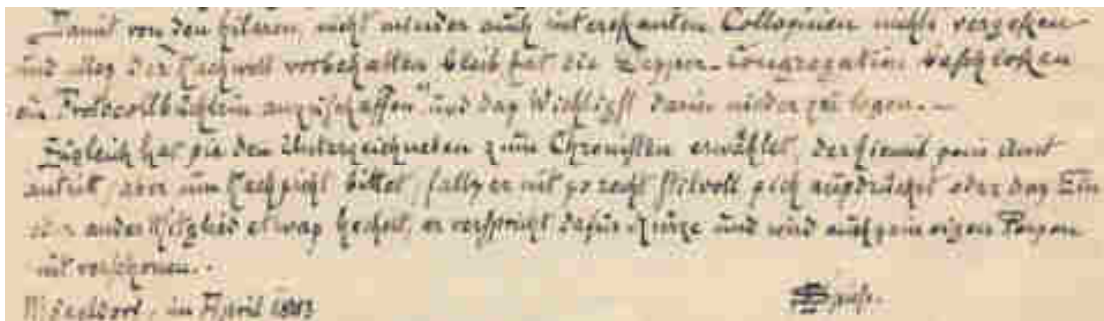 Damit von den hiteren, nicht minder auch interessanten Colloquien nichts vergessen
und alles der Nachwelt vorbehalten bleib hat die Congregation beschlossen
ein Protocollbüchlein anzuschaffen und das Wichtigst darin nieder zu legen.—
Zugleich hat sie den Unterzeichneten zum Chronisten erwählet, der hiemit sein Amt
antrit, aber um Nachsicht bittet, falls er nit so recht stilvoll sich ausdrücket oder das Ein
oder ander Mitglied etwas hechelt, er verspricht dafür Kürze und wird auch sein eigen Person
nit verschonen.
Düsseldorf, im April